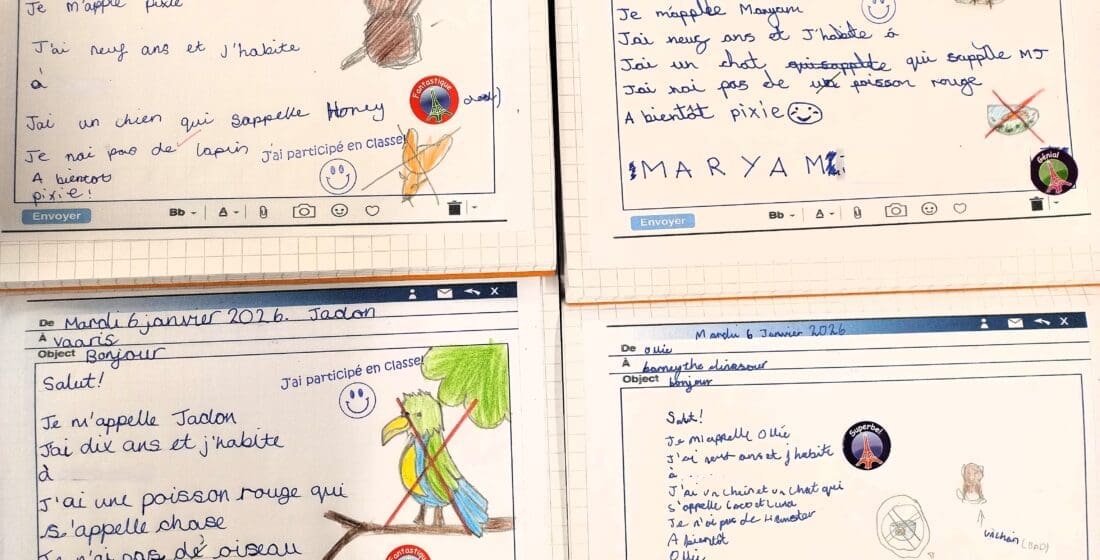 Je m'apple pixie
J'ai neuf ans et j'habite
à
J'ai un chien qui sappelle Honey
Je nai pas de lapin
A bientot
pixie!
Fantastique
J'ai participé en Classe!
Envoyer
Bb
A
Je m'applee Maryam
J'ai neuf ans et J'habite á
J'ai un chat qui sapplle MJ
J'ai nai pas de poisson rouge
A bientôt pixie
MARYAM
Génial
Envoyer
Bb
A
De Mardi 6 janvier 2026. Jadon
À Vaaris
Object Bonjour
Salut!
J'ai participé en Classe!
Je m'appelle Jadon
J'ai dix ans et j'habite
à
J'ai une poisson rouge qui
s'appelle chase
Je n'ai pas dé oiseau
Fantastique
Mardi 6 Janvier 2026
De Ollie
À barney the dinosour
Object bonjour
Salut!
Je m'appelle Ollie
J'ai neuf ans et j'habite
à
J'ai un chein et un chat qui
s'appelle Coco et Luna
Je n'ai pas de Hamster
A bientôt
Ollie
Superbe!
un chan (BAD)